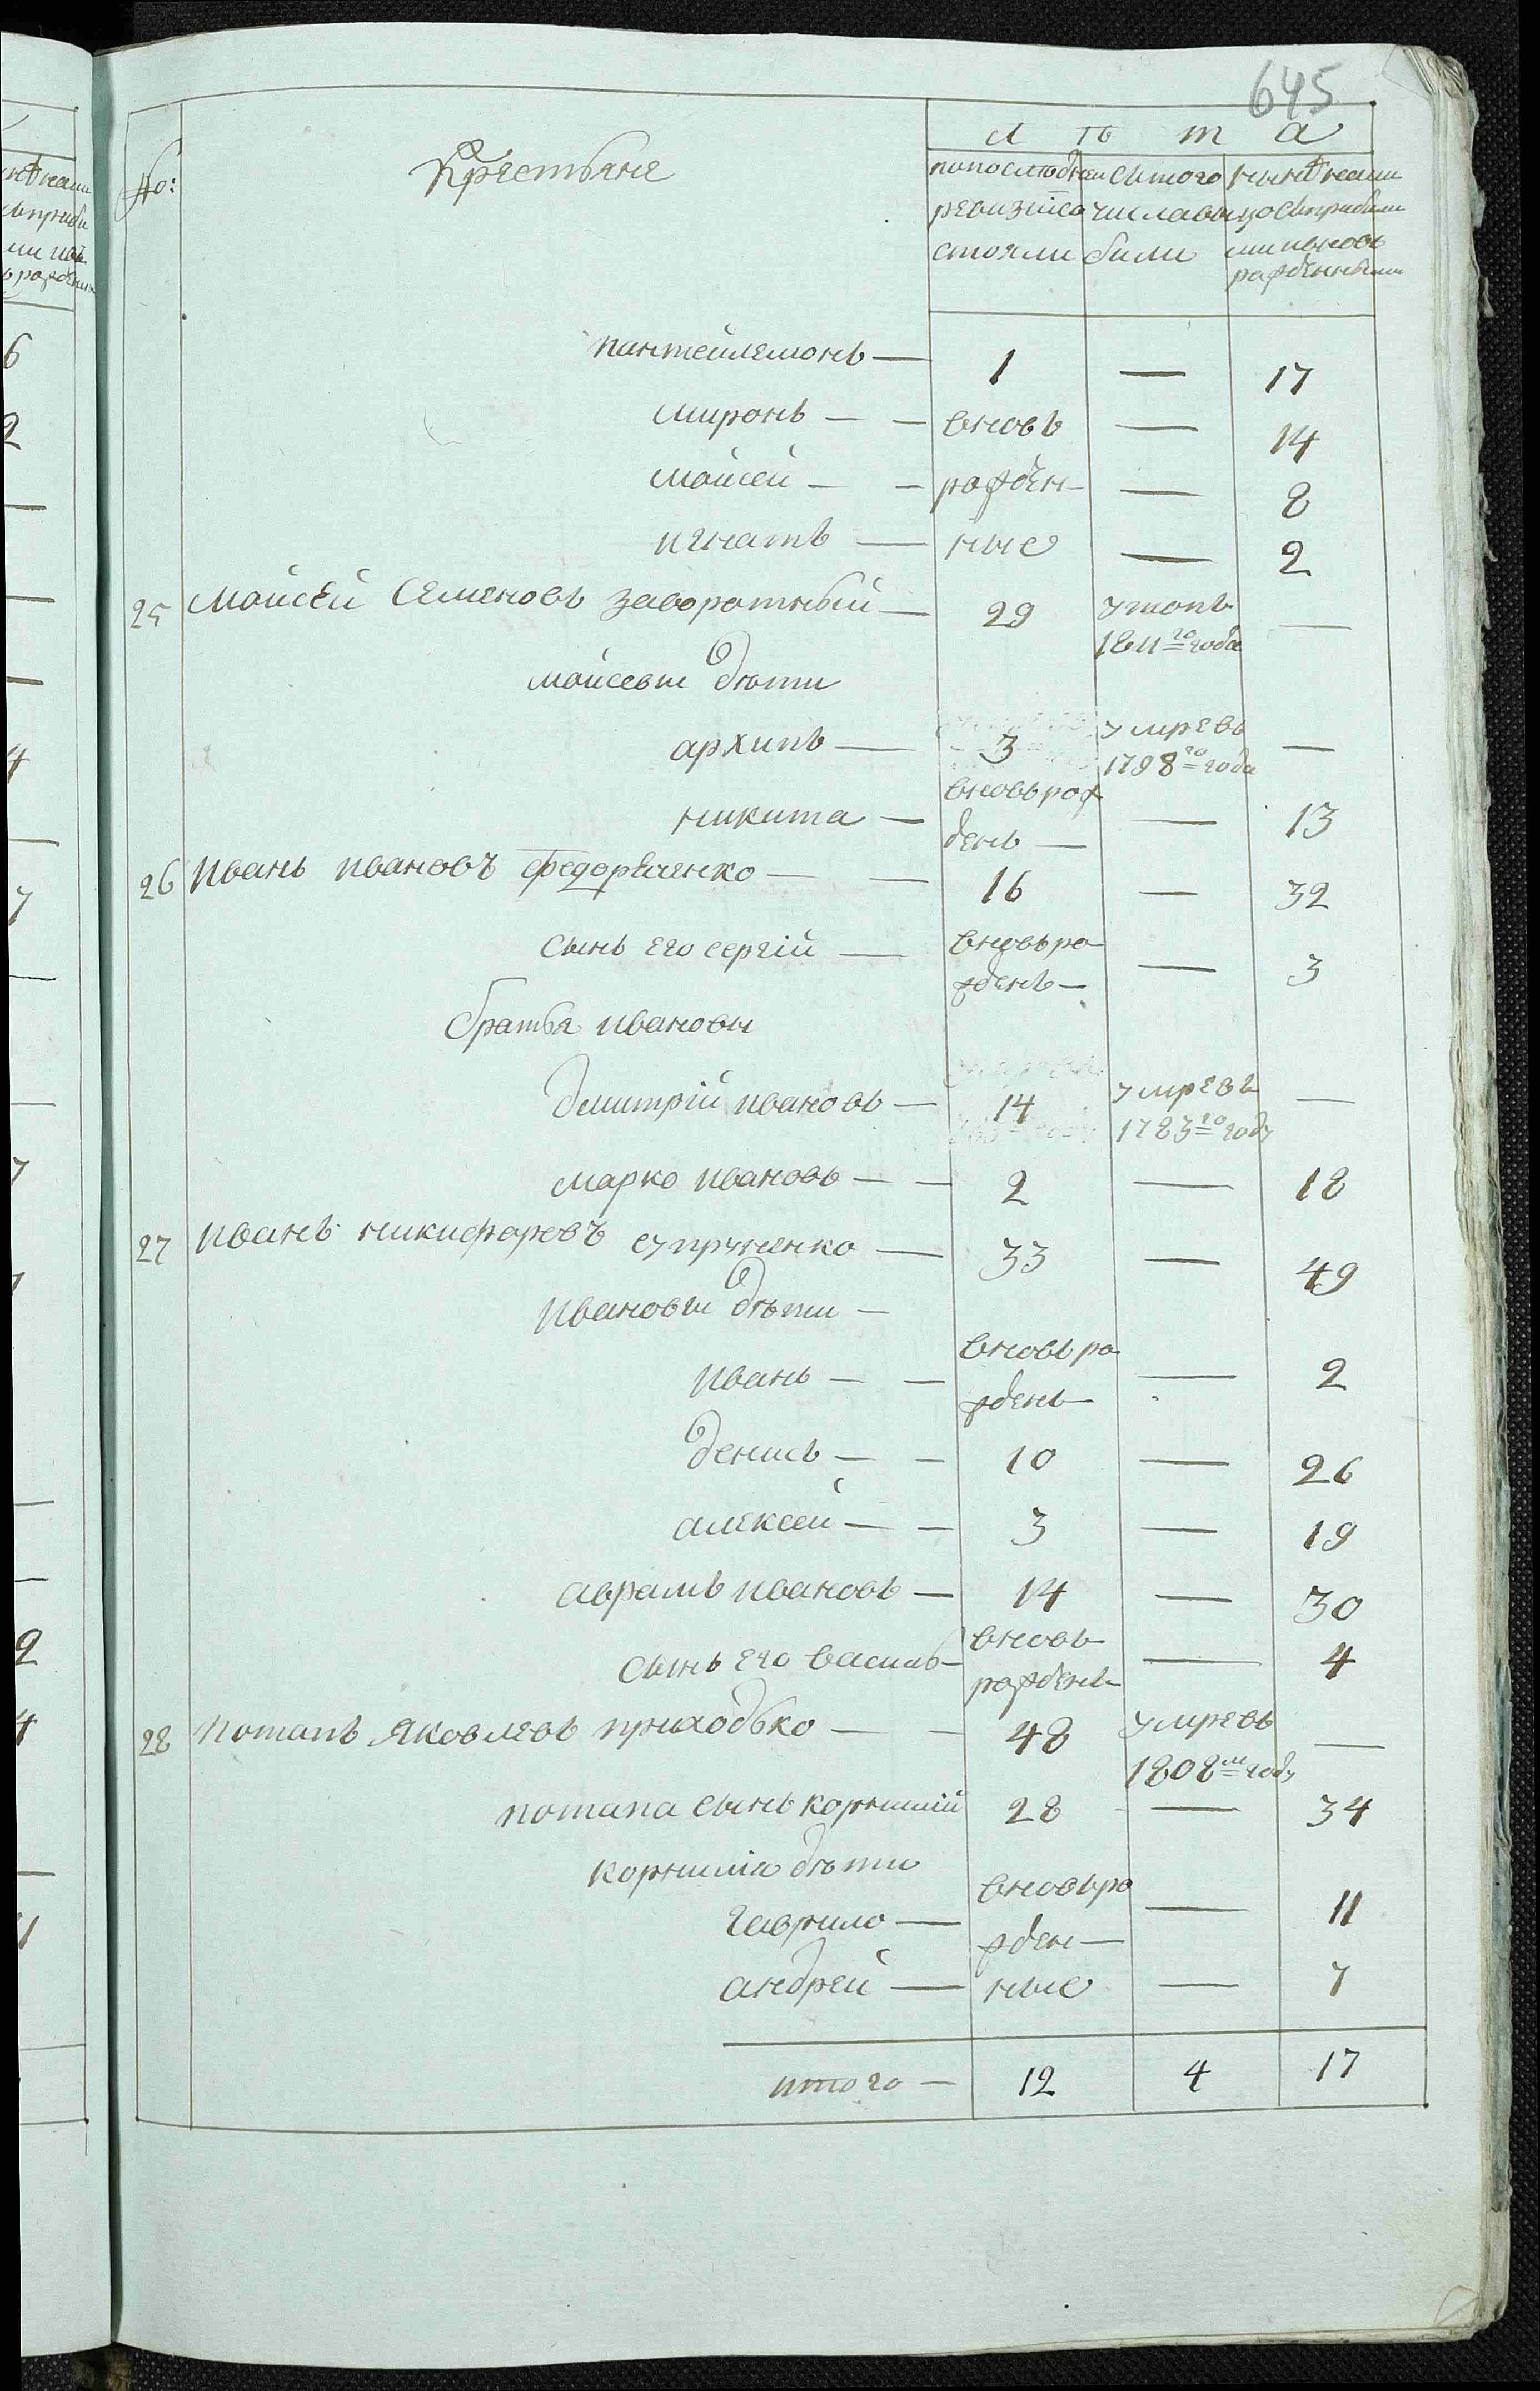 645
Л ѣ т а
No: Крестьяне
попоследней ревизіи состояли
сътого числа выбыли
нынѣ налицо съприбылими ивновь рожденными
пантейлемонъ — 1 — 17
миронъ — — вновь — 14
мойсей — — рожден — 8
игнатъ — ные — 2
25 Мойсей Семеновъ заворотный — 29 утопъ —
1811го года
мойсевы дѣти
архипъ — 3 умревъ —
1798го года
никита — вновь рож — 13
денъ —
26 Иванъ Ивановъ федорѣченко — — 16 — 32
сынъ его сергій — вновь ро — 3
жденъ —
братья ивановы
дмитрій ивановъ — 14 умревъ —
1783го году
марко ивановъ — — 2 — 18
27 Иванъ никифоровъ супруненко — 33 — 49
Ивановы дѣти —
иванъ — — вновь ро — 2
жденъ
денисъ — — 10 — 26
алексей — — 3 — 19
аврамъ ивановъ — 14 — 30
сынъ его василь — вновь — 4
рожденъ
28 Потапъ Яковлевъ приходько — — 48 умревъ —
1808м году
потапа сынъ корнилій 28 — 34
корнилія дѣти
гаврило — вновь ро — 11
жден —
андрей — ные — 7
итого — 12 4 17